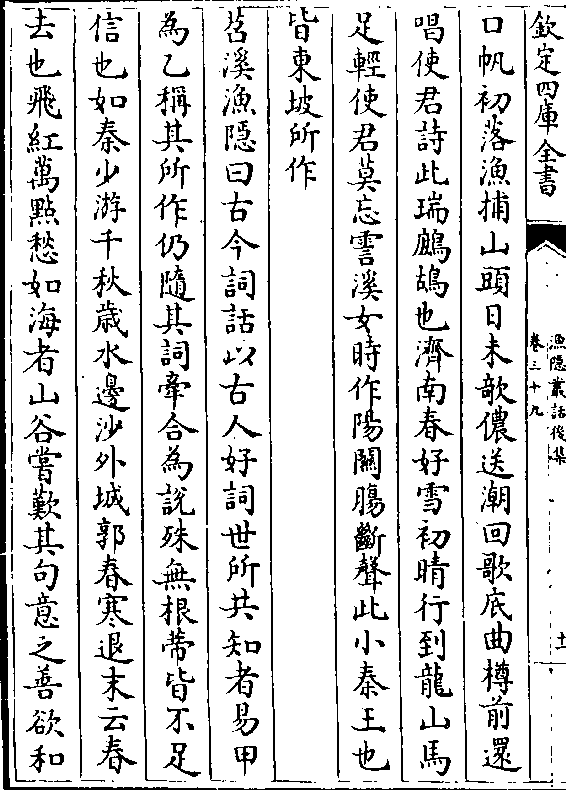 欽定四庫全書
漁隠叢話後集
卷三十九
十一
口帆初落漁捕山頭日未欹儂送潮回歌底曲樽前還
唱使君詩此瑞鷓鴣也濟南春好雪初晴行到龍山馬
足輕使君莫忘霅溪女時作陽關腸斷聲此小秦王也
皆東坡所作
苕溪漁隠曰古今詞話以古人好詞世所共知者易甲
為乙稱其所作仍隨其詞牽合為説殊無根蔕皆不足
信也如秦少游千秋歲水邊沙外城郭春寒退末云春
去也飛紅萬點愁如海者山谷嘗歎其句意之善欲和